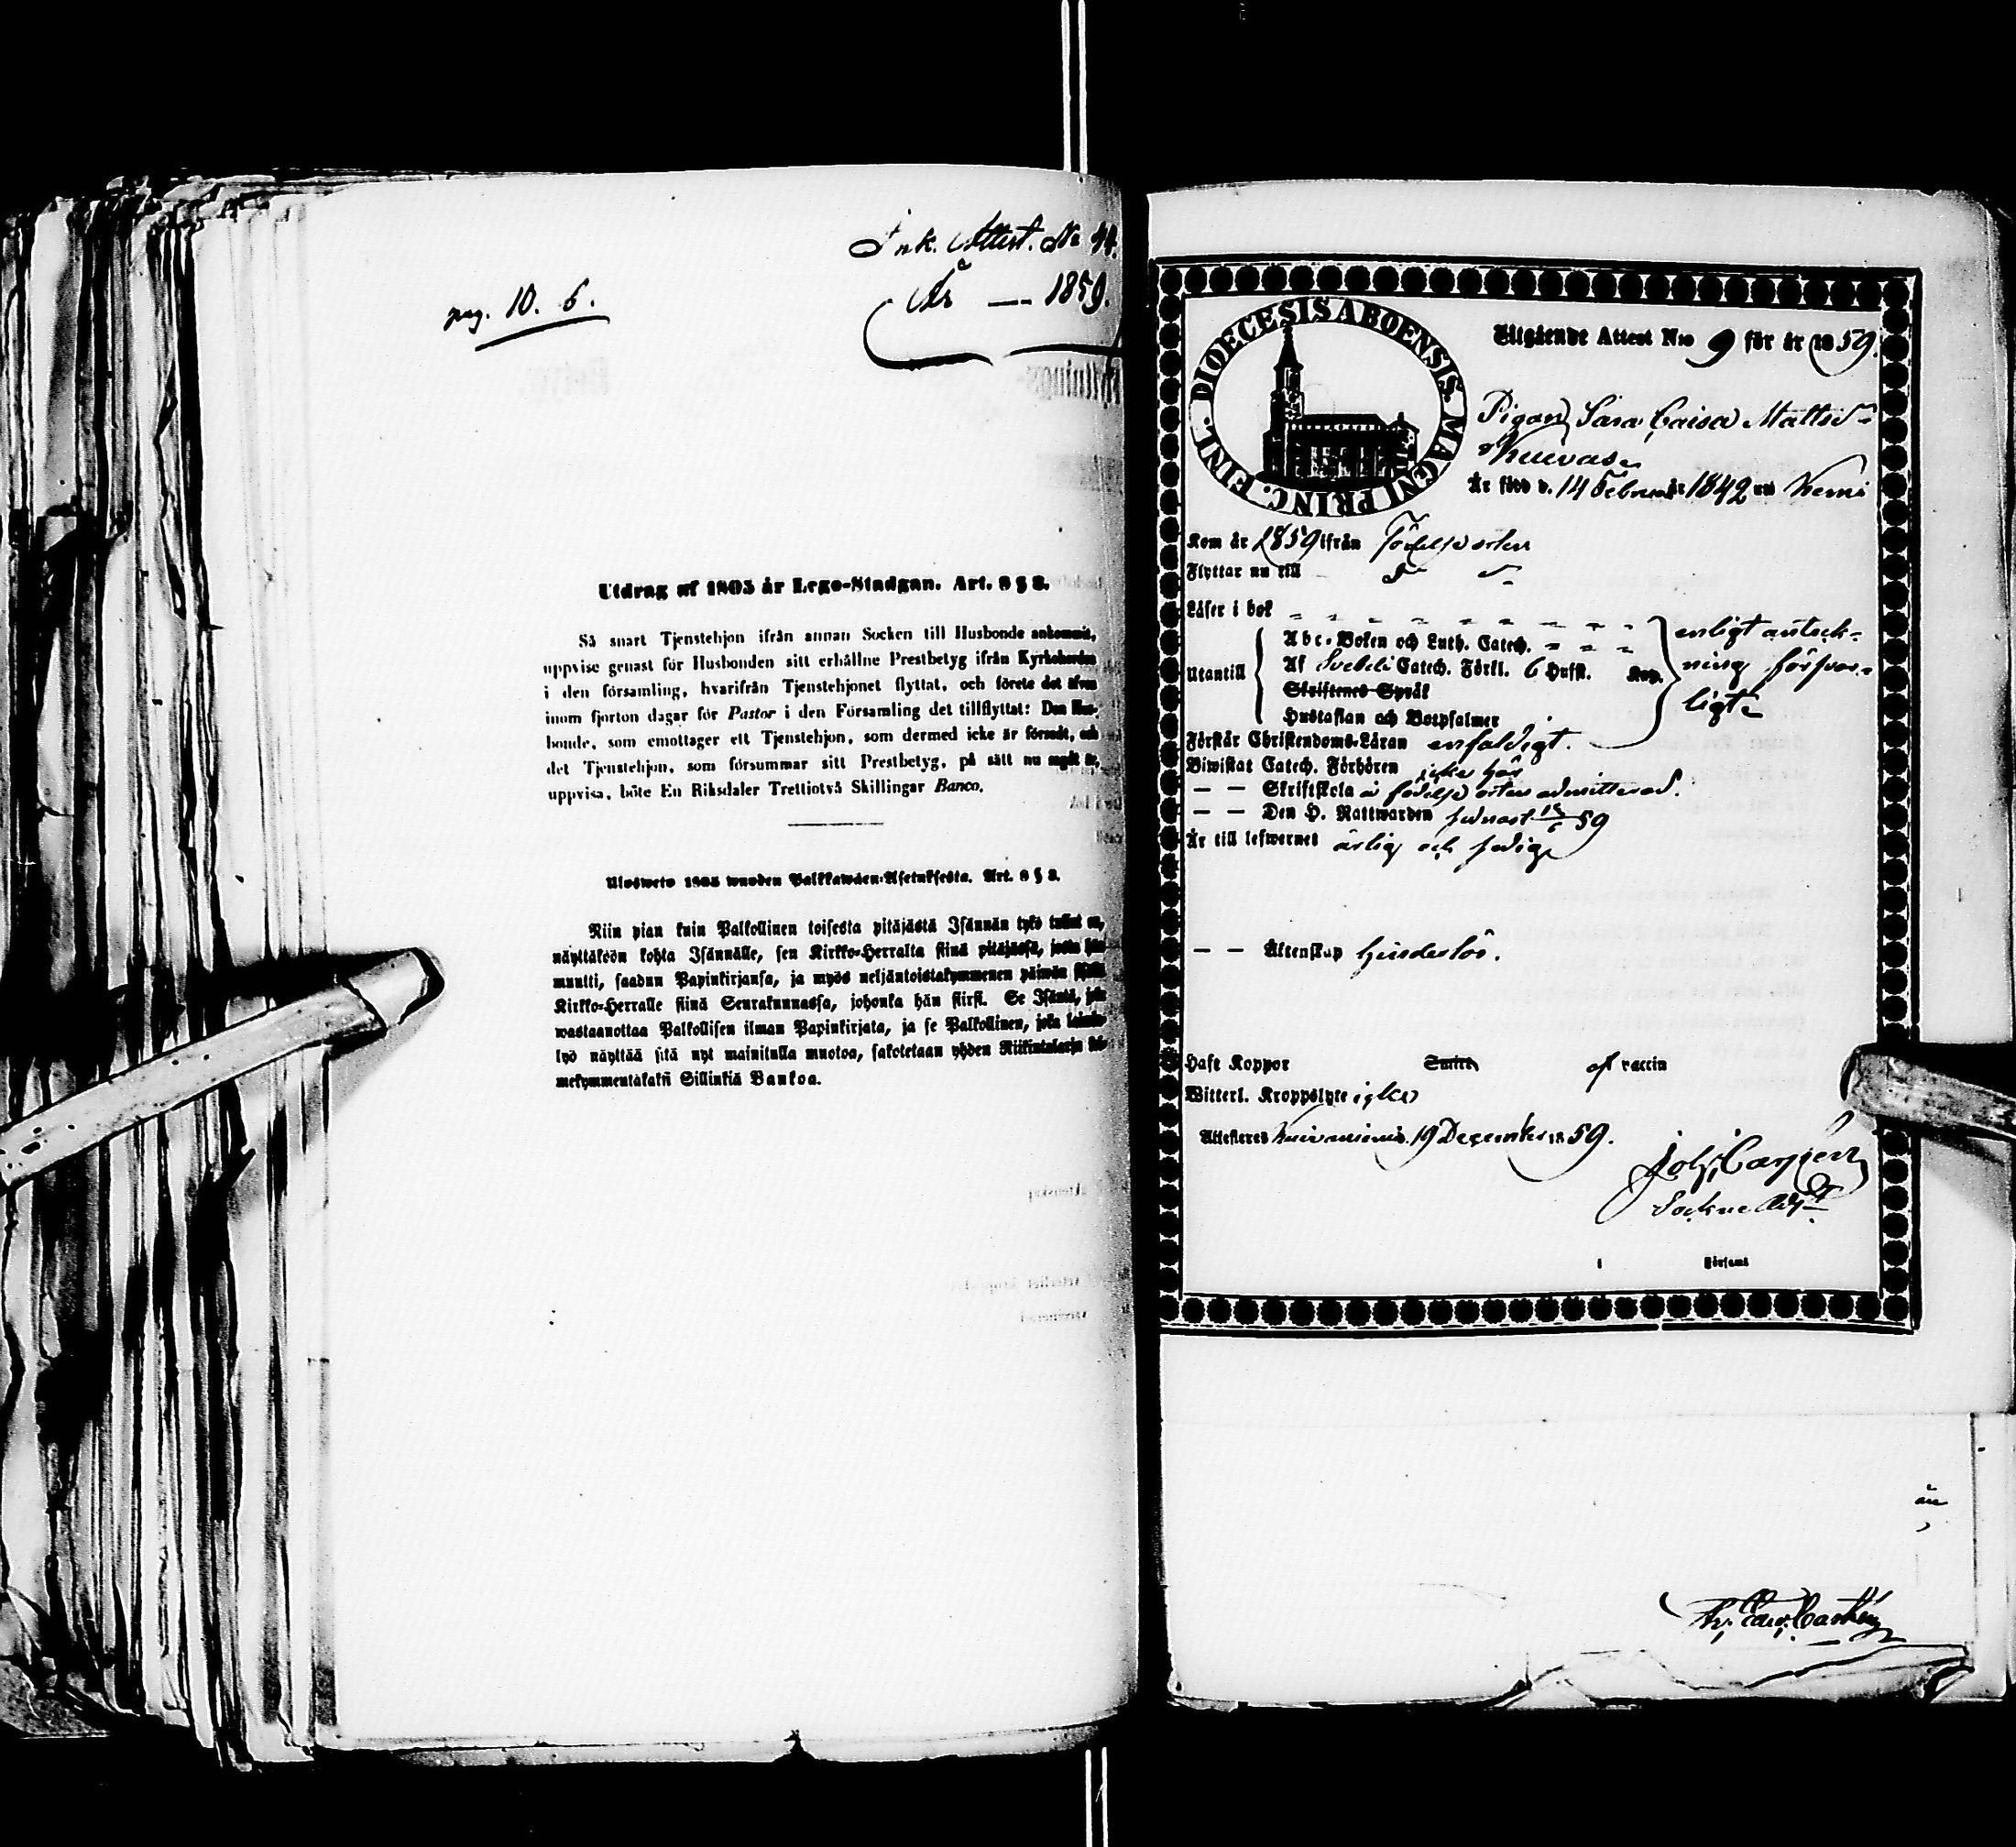 Ink. Attest. No 44.
År — 1859.
pag. 10. 6.
Utdrag af 1805 år Lego-Stadgan. Art. 8 § 8.
Så snart Tjenstehjon ifrån annan Socken till Husbonde ankommit,
uppvise genast för Husbonden sitt erhållne Prestbetyg ifrån Kyrkoherden
i den församling, hvarifrån Tjenstehjonet flyttat, och förete det äfven
inom fjorton dagar för Pastor i den Församling det tillflyttat: Den Hus-
bonde, som emottager ett Tjenstehjon, som dermed icke är försedt, och
det Tjenstehjon, som försummar sitt Prestbetyg, på sätt nu sagdt är,
uppvisa, böte En Riksdaler Trettiotvå Skillingar Banco.
Ulosweto 1805 wuoden Palkkawäen-Asetuksesta. Art. 8 § 8.
Niin pian kuin Palkollinen toisesta pitäjästä Isännän tykö tullut on,
näyttäköön kohta Isännälle, sen Kirkko-Herralta siinä pitäjässä, josta hän
muutti, saadun Papinkirjansa, ja myös neljäntoistakymmenen päiwän sisällä
Kirkko-Herralle siinä Seurakunnassa, johonka hän siirsi. Se Isäntä, joka
wastaanottaa Palkollisen ilman Papinkirjata, ja se Palkollinen, joka laimin-
lyö näyttää sitä nyt mainitulla muotoa, sakotetaan yhden Riikintalarin kol-
mekymmentäkaksi Sillinkiä Bankoa.
DIOECESIS ABOENSIS. MAGNI PRINC. FINL.
Utgående Attest N:o 9 för år 1859.
Pigan Sara Caisa Mattsd:r
Kuivas
Är född d. 14 Februari år 1842 uti Kemi
Kom år 1859 ifrån Födelseorten
Flyttar nu till
Läser i bok
Abc-Boken och Luth. Catech.
enligt anteck-
Utantill
Af Svebelii Catech. Förkl. 6 Hufst. Kap.
ning försvar-
Skriftenes Språk
ligt
Hustaflan och Botpsalmer
Förstår Christendoms-Läran enfaldigt.
Biwistat Catech. Förhören icke här
— — Skriftskola i födelse orten admitterad.
— — Den H. Nattwarden sednast 59
Är till lefwernet ärlig och sedig
— — Äktenskap hinderslös.
Haft Koppor Smitt. af vaccin
Witterl. Kroppslyte icke
Attesteras Kuivaniemi d. 19 December 1859.
Joh. Carpén
Sockne Adjt
i Församl
än